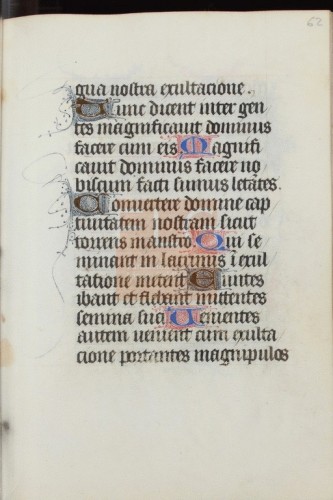 62
gua nostra exultacione.
Tunc dicent inter gen
tes magnificauit dominus
facere cum eis Magnifi
cauit dominus facere no
biscum facti sumus letantes.
Conuertere domine cap
tiuitatem nostram sicut
torrens in austro. Qui se
minant in lacrimis i exul
tatione metent Euntes
ibant et flebant mittentes
semina sua Uenientes
autem uenient cum exulta
cione portantes manipulos